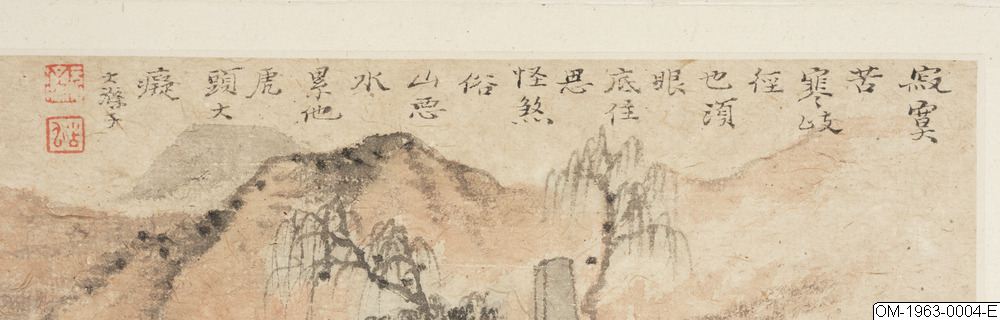 寂寞
苦
寒岐
徑
也須
眼
底住
思
怪煞
俗
山惡
水
累他
虎
頭大
癡
大滌子
OM-1963-0004-E